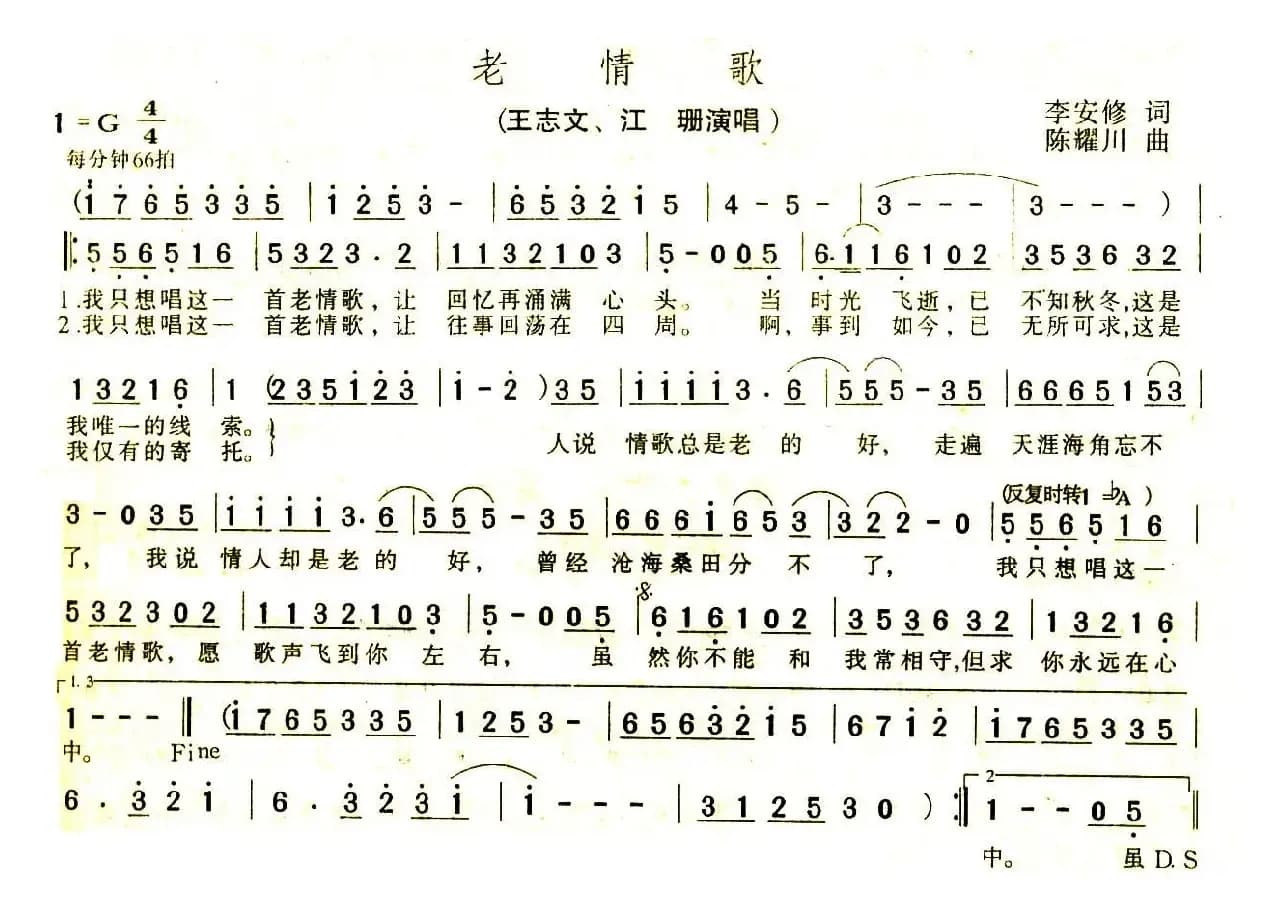 老 情 歌
1 = G 4/4
(王志文、江 珊演唱)
李安修 词
每分钟66拍
陈耀川 曲
(1 7 6 5 3 3 5 | 1 2 5 3 - | 6 5 3 2 1 5 | 4 - 5 - | 3 - - - | 3 - - - ) |
‖: 5 5 6 5 1 6 | 5 3 2 3 . 2 | 1 1 3 2 1 0 3 | 5 - 0 0 5 | 6 . 1 1 6 1 0 2 | 3 5 3 6 3 2 |
1.我只想唱这一 首老情歌，让 回忆再涌满 心 头。 当 时光 飞逝，已 不知秋冬,这是
2.我只想唱这一 首老情歌，让 往事回荡在 四 周。 啊，事到 如今，已 无所可求,这是
1 3 2 1 6 | 1 (2 3 5 1 2 3 | 1 - 2 ) 3 5 | 1 1 1 1 3 . 6 | 5 5 5 - 3 5 | 6 6 6 5 1 5 3 |
我唯一的线 索。
我仅有的寄 托。
人说 情歌总是老 的 好， 走遍 天涯海角忘不
(反复时转1 =♭A )
3 - 0 3 5 | 1 1 1 1 3 . 6 | 5 5 5 - 3 5 | 6 6 6 1 6 5 3 | 3 2 2 - 0 | 5 5 6 5 1 6 |
了， 我说 情人却是老 的 好， 曾经 沧海桑田分 不 了， 我只想唱这一
5 3 2 3 0 2 | 1 1 3 2 1 0 3 | 5 - 0 0 5 | 6 1 6 1 0 2 | 3 5 3 6 3 2 | 1 3 2 1 6 |
首老情歌，愿 歌声飞到你 左 右， 虽 然你不能 和 我常相守,但求 你永远在心
1. 3
1 - - - ‖ (1 7 6 5 3 3 5 | 1 2 5 3 - | 6 5 6 3 2 1 5 | 6 7 1 2 | 1 7 6 5 3 3 5 |
中。 Fine
6 . 3 2 1 | 6 . 3 2 3 1 | 1 - - - | 3 1 2 5 3 0 ) :‖ 2 1 - - 0 5 ‖
中。 虽 D.S